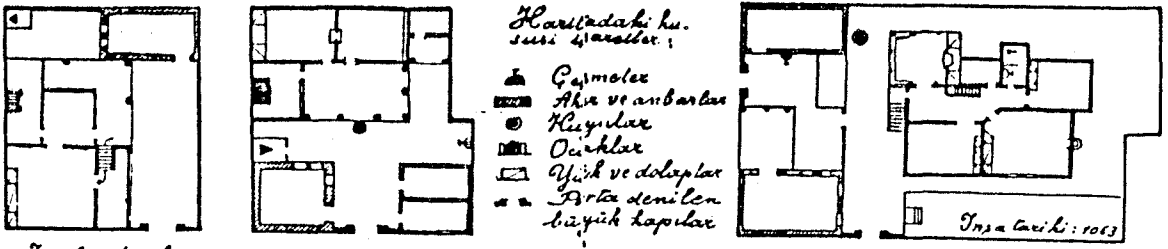 Haritadaki hu-
susi işaretler:
Çeşmeler
Ahır ve anbarlar
Kuyular
Ocaklar
Yük ve dolaplar
Porta denilen
büyük kapılar
İnşa tarihi: 1063